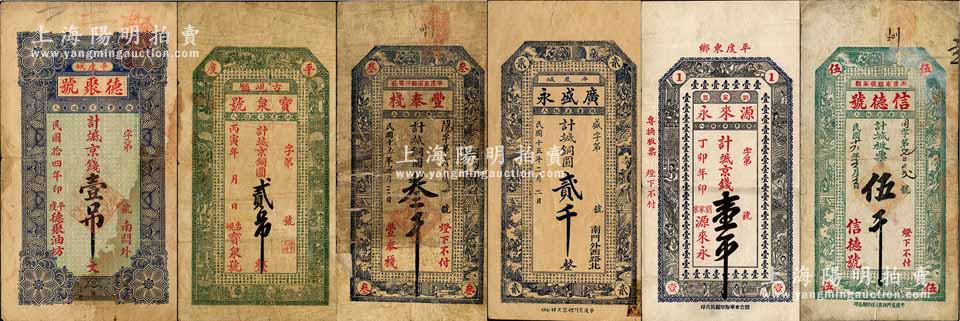 上海陽明拍賣
www.yangmingauction.com
上海陽明拍賣
www.yangmingauction.com
上海陽明拍賣
www.yangmingauction.com
平度城
德聚號
字第
號
計城京錢壹吊文
南門外
民國拾四年印
平度德聚油坊
平度
古峴鎮
寶泉號
字第
號
計城京銅圓貳吊
丙寅年 月 日
寶泉號
叁 叁
豐泰棧
計城
叁千
燈下不付
豐泰棧
叁 叁
貳 貳
平度城
廣盛永
盛字第
號
計城銅圓貳千整
南門外路北
民國十五年 二日
貳 貳
平度東鄉
1 1
源來永
字第
號
計城京錢壹吊
丁卯年印
源來永
專換板票 燈下不付
壹 壹
州
伍 伍
信德號
計城板票伍千
號
燈下不付
信德號
伍 伍